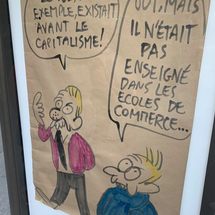 EXEMPLE, EXISTAIT
AVANT LE
CAPITALISME!
OUI, MAIS
IL N'ÉTAIT
PAS
ENSEIGNÉ
DANS LES
ÉCOLES DE
COMMERCE...